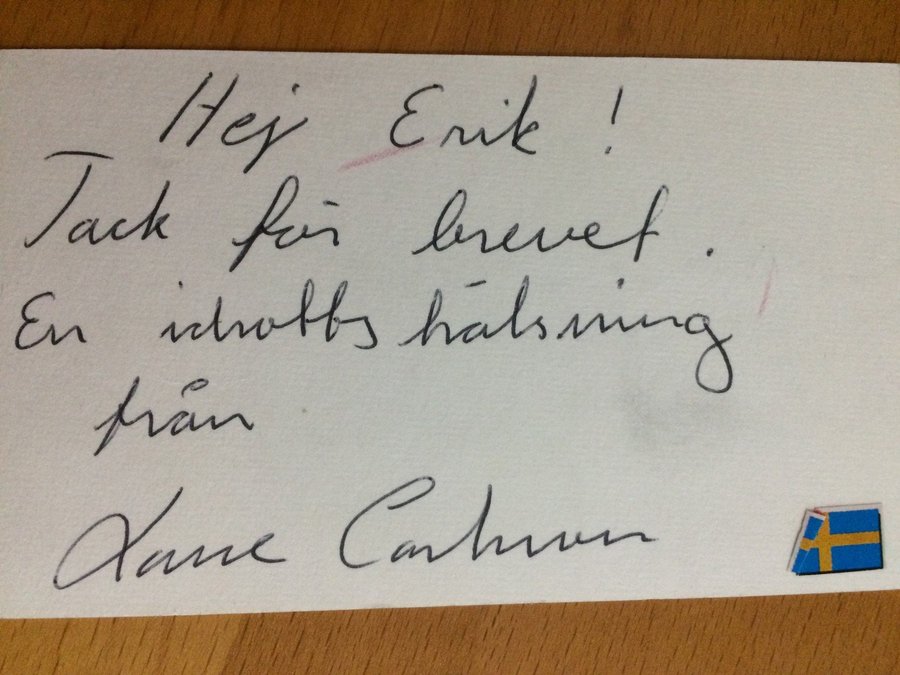 Hej Erik!
Tack för brevet.
En idrottshälsning
från
Lasse